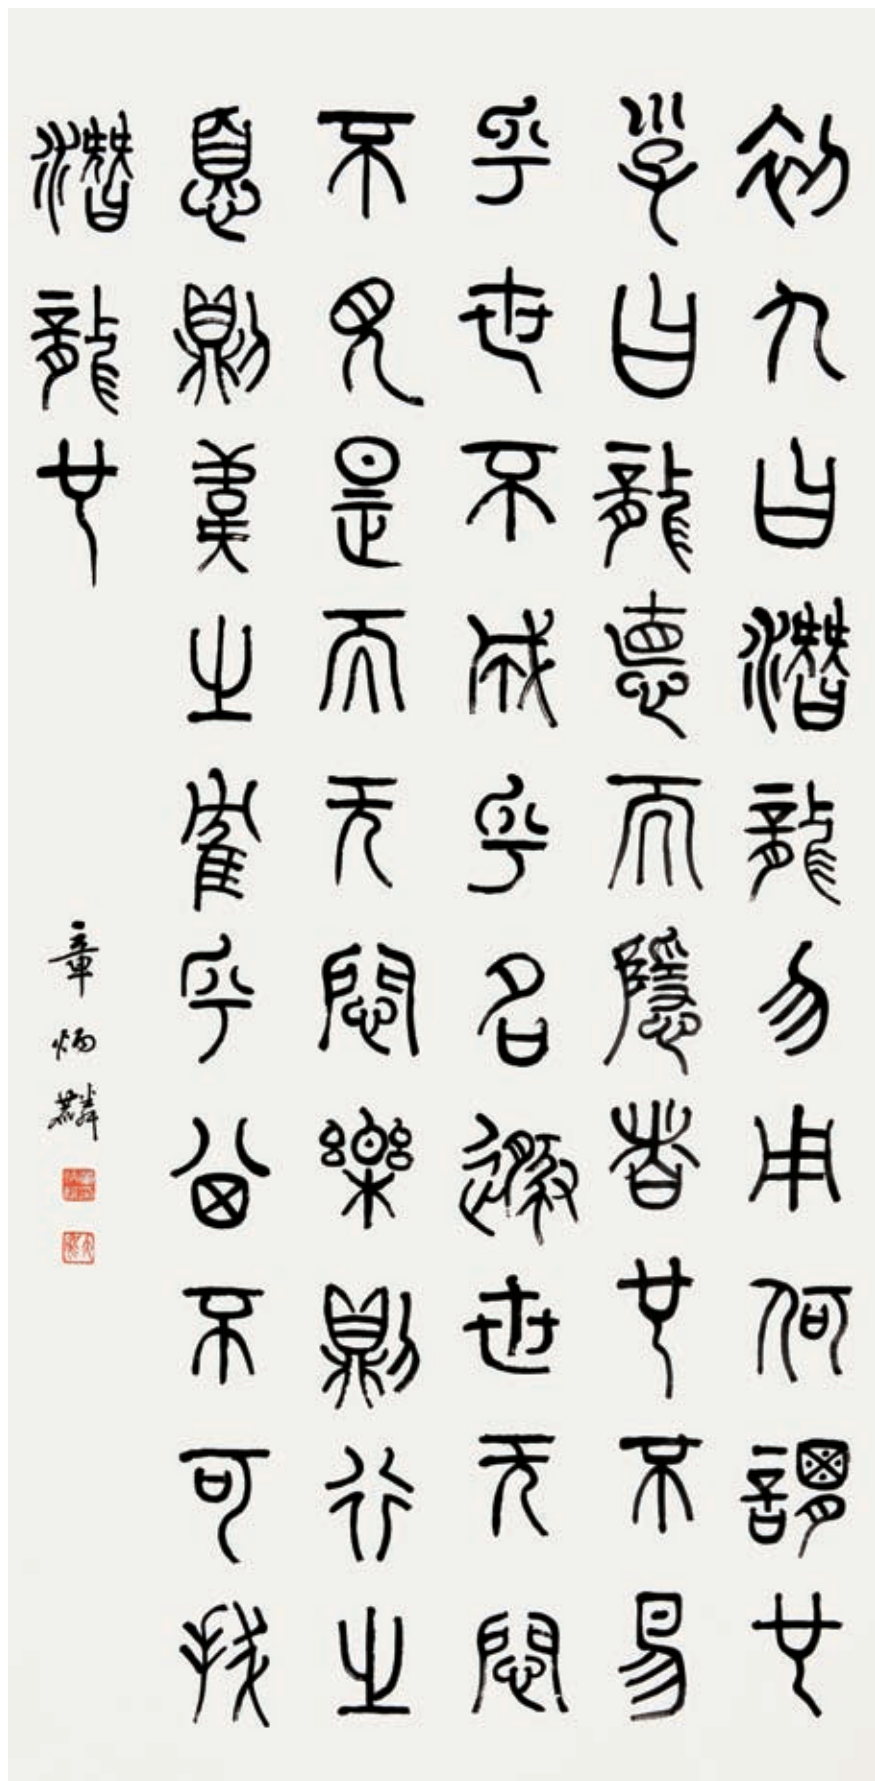 初九曰潛龍勿用何謂也
子曰龍德而隱者也不易
乎世不成乎名遯世无悶
不見是而无悶樂則行之
憂則違之隺乎其不可拔
潛龍也
章炳麟